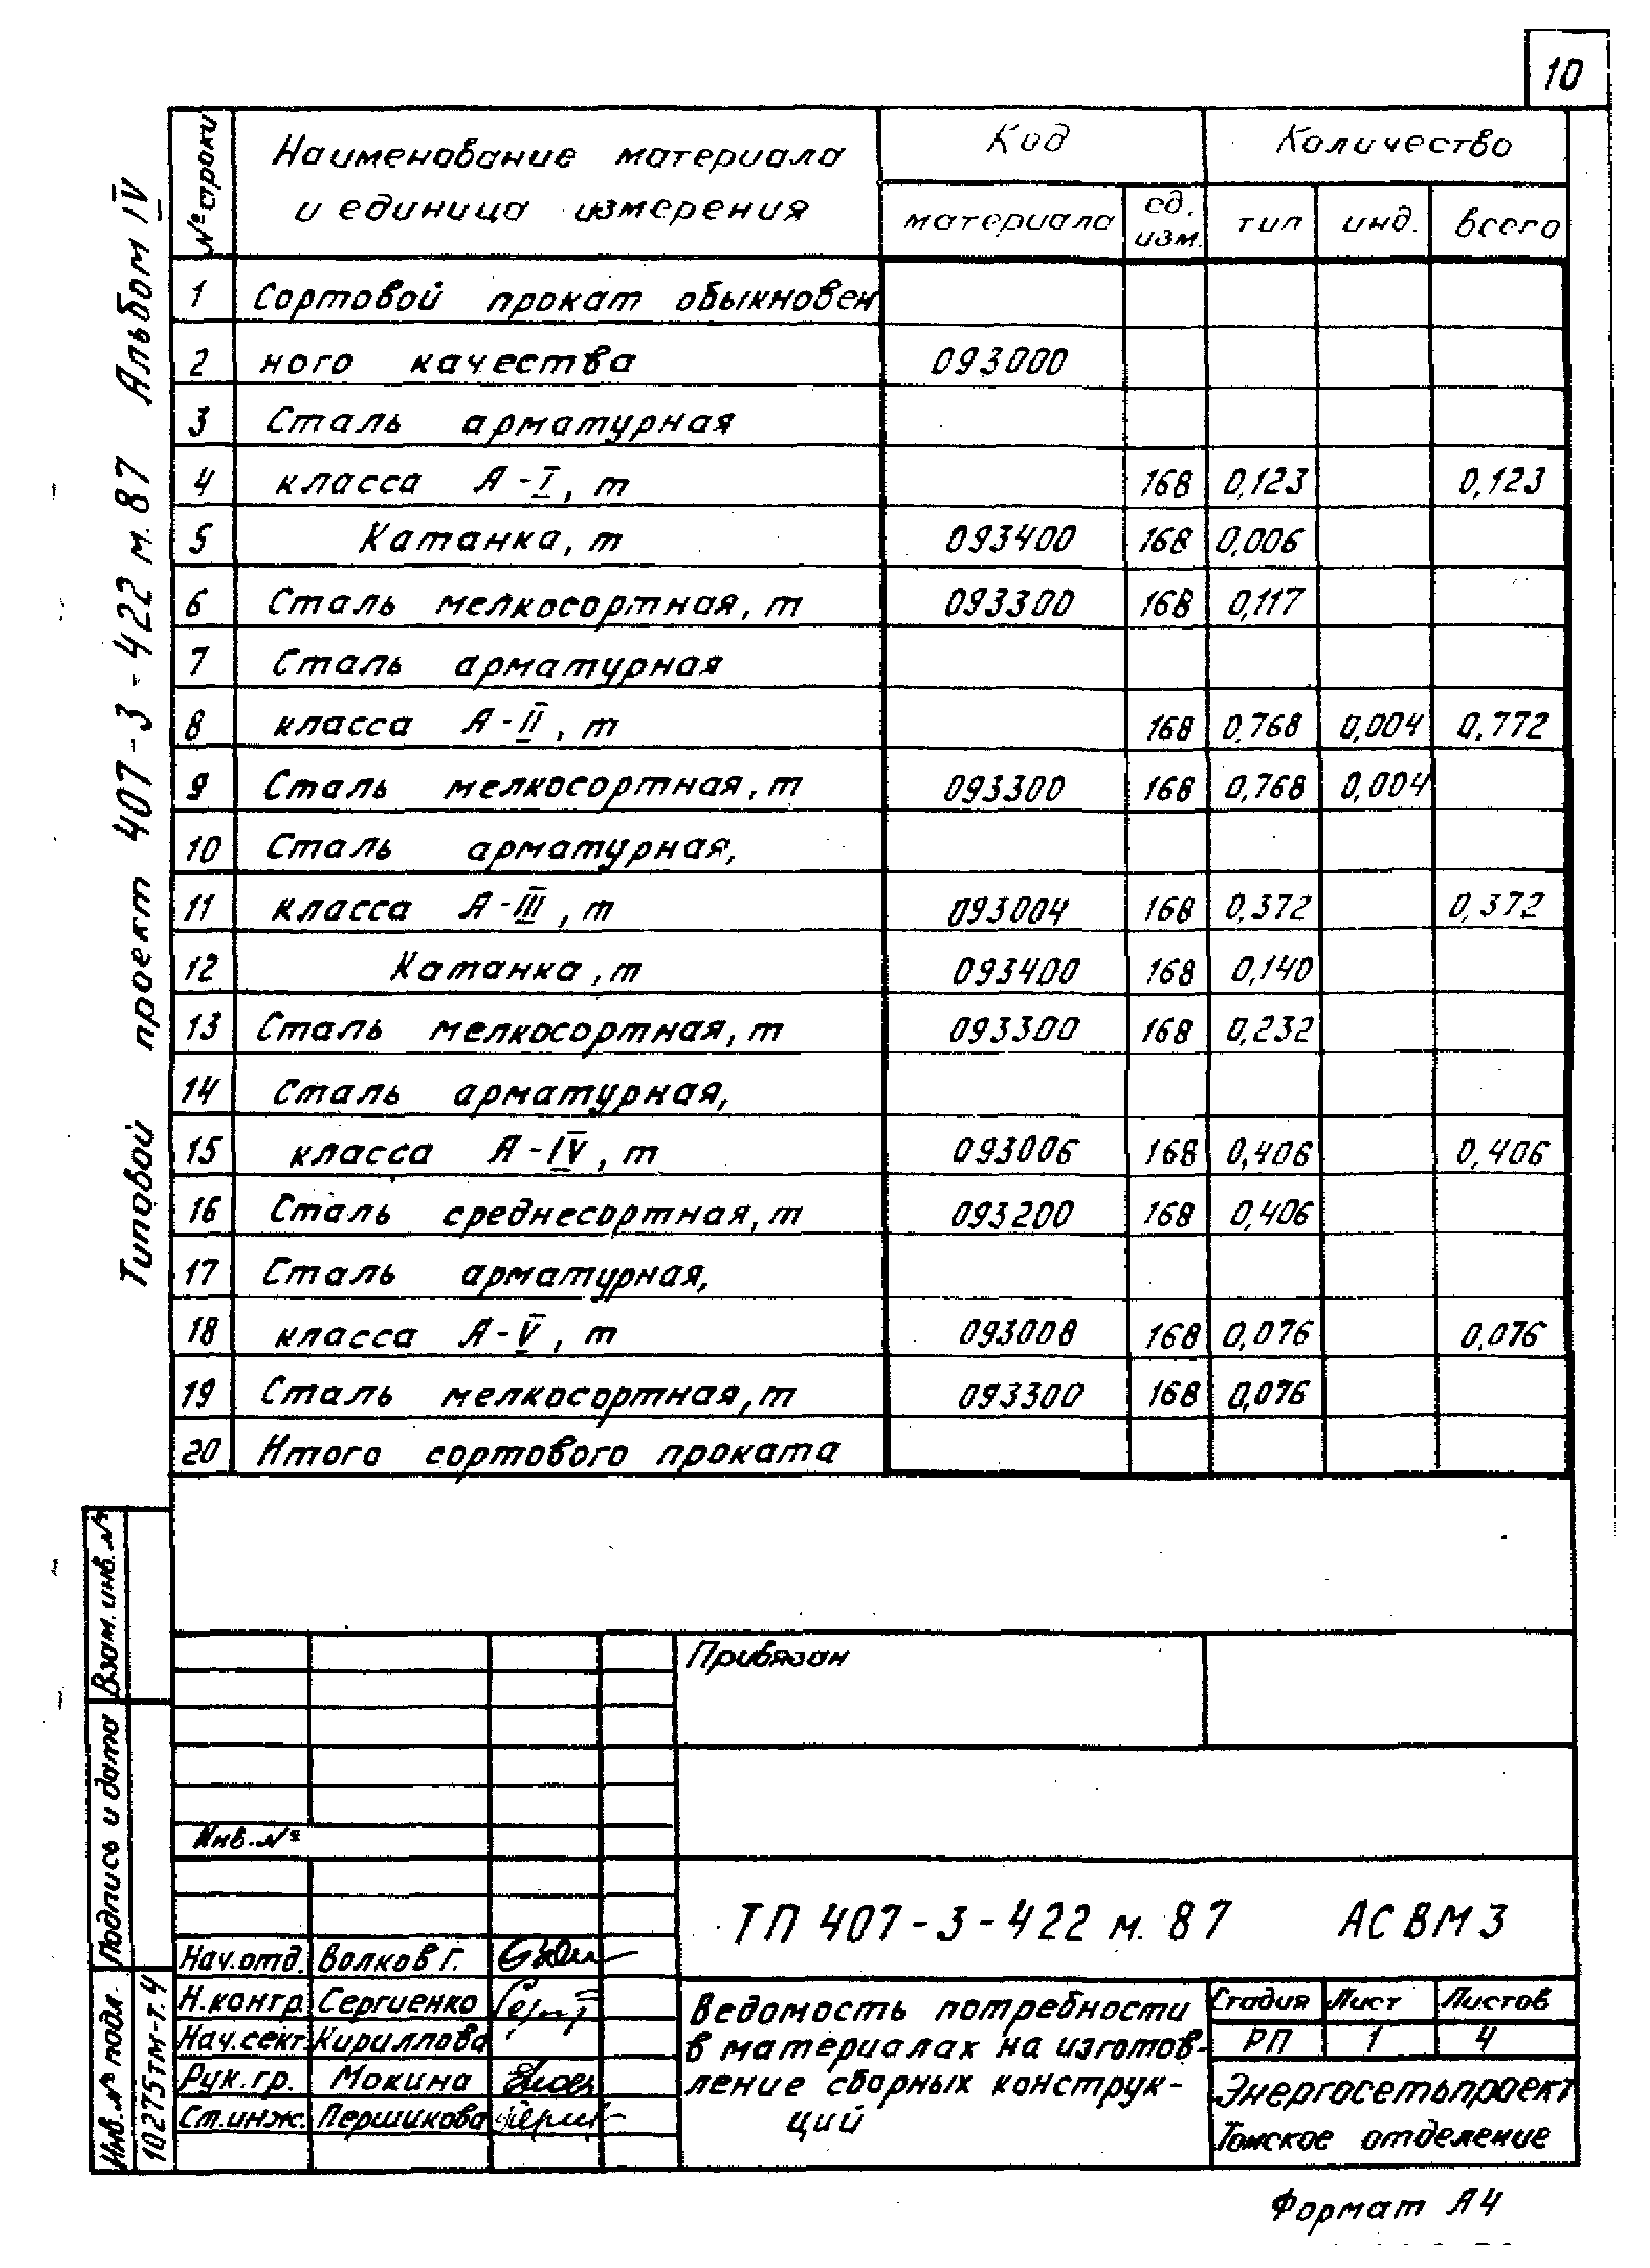 10
Типовой проект 407-3-422 м.87 Альбом IV
№ строки
Наименование материала
и единица измерения
Код
Количество
материала
ед.
изм.
тип
инд.
всего
1 Сортовой прокат обыкновен
2 ного качества 093000
3 Сталь арматурная
4 класса А-I, т 168 0,123 0,123
5 Катанка, т 093400 168 0,006
6 Сталь мелкосортная, т 093300 168 0,117
7 Сталь арматурная
8 класса А-II, т 168 0,768 0,004 0,772
9 Сталь мелкосортная, т 093300 168 0,768 0,004
10 Сталь арматурная,
11 класса А-III, т 093004 168 0,372 0,372
12 Катанка, т 093400 168 0,140
13 Сталь мелкосортная, т 093300 168 0,232
14 Сталь арматурная,
15 класса А-IV, т 093006 168 0,406 0,406
16 Сталь среднесортная, т 093200 168 0,406
17 Сталь арматурная,
18 класса А-V, т 093008 168 0,076 0,076
19 Сталь мелкосортная, т 093300 168 0,076
20 Итого сортового проката
Взам. инв. №
Подпись и дата
Инв. № подл.
10275тм-т.4
Привязан
Инв. №
ТП 407-3-422 м.87 АС ВМ3
Нач.отд. Волков Г.
Н.контр. Сергиенко
Нач.сект. Кириллова
Рук.гр. Мокина
Ст.инж. Першикова
Ведомость потребности
в материалах на изготов-
ление сборных конструк-
ций
Стадия Лист Листов
РП 1 4
Энергосетьпроект
Томское отделение
Формат А4